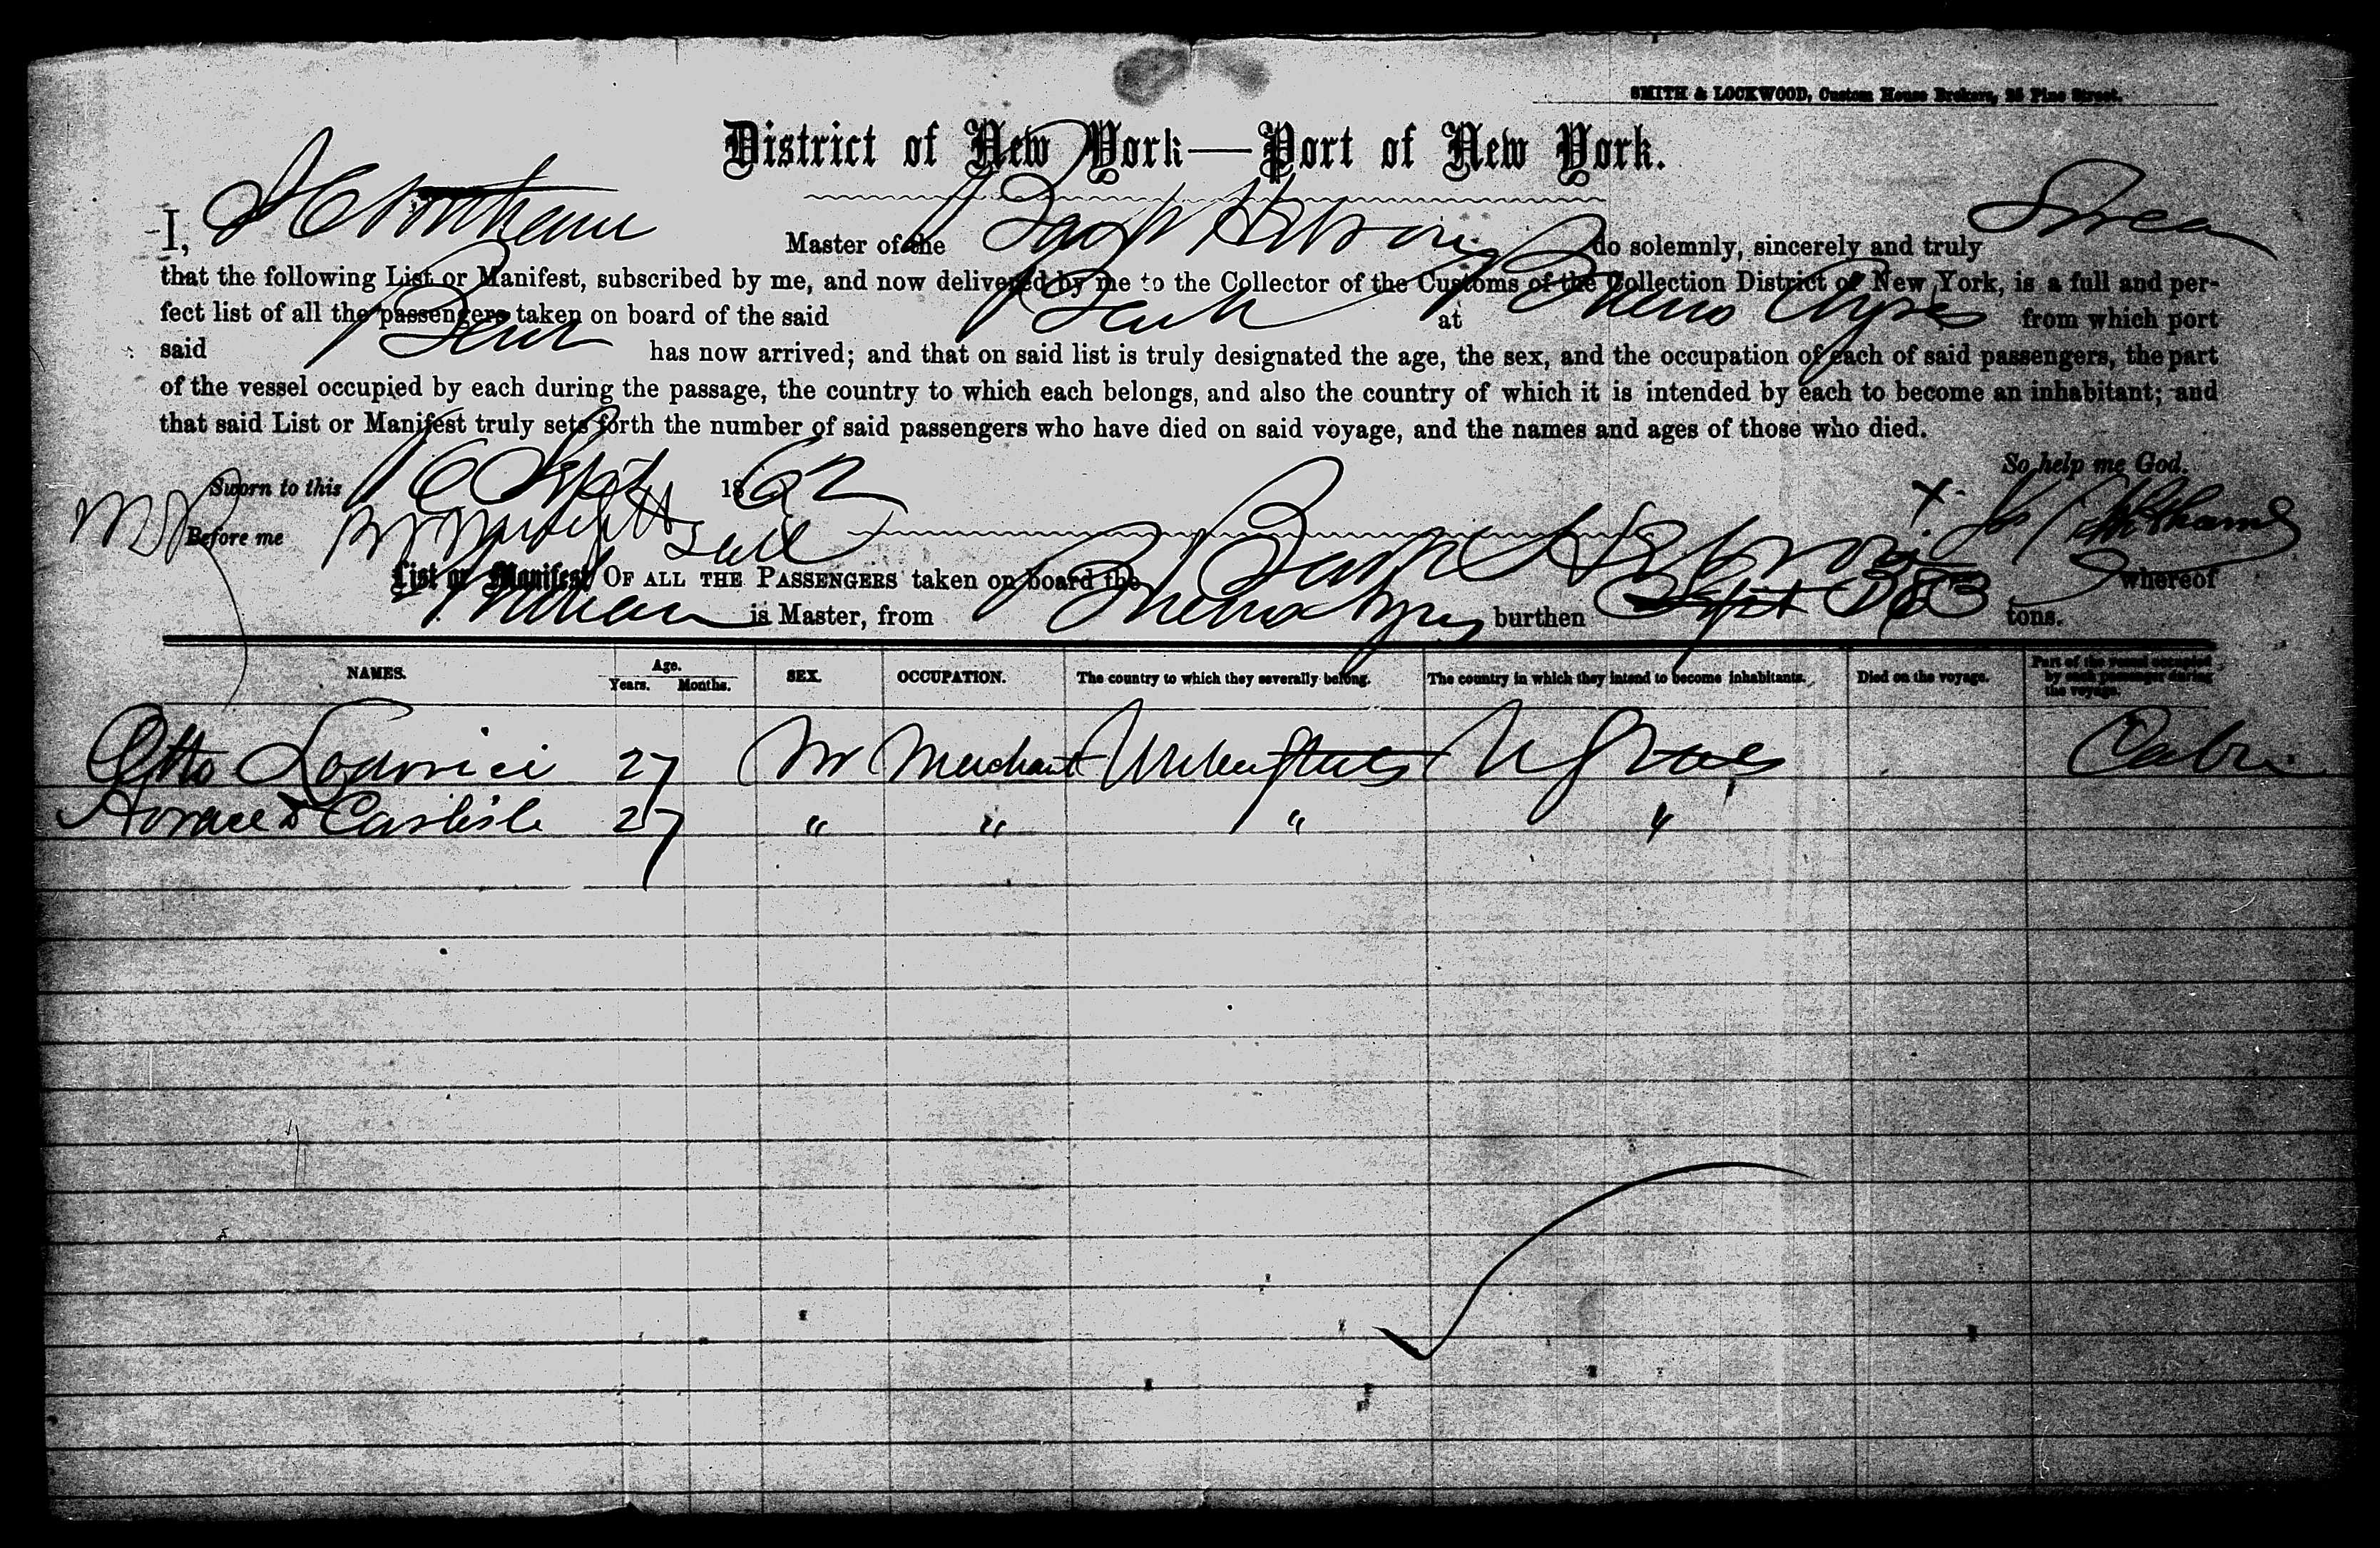 SMITH & LOCKWOOD, Custom House Brokers, 25 Pine Street.
District of New York—Port of New York.
I, Master of the Bark do solemnly, sincerely and truly Swear
that the following List or Manifest, subscribed by me, and now delivered by me to the Collector of the Customs of the Collection District of New York, is a full and per-
fect list of all the passengers taken on board of the said Bark at Buenos Ayres from which port
said Bark has now arrived; and that on said list is truly designated the age, the sex, and the occupation of each of said passengers, the part
of the vessel occupied by each during the passage, the country to which each belongs, and also the country of which it is intended by each to become an inhabitant; and
that said List or Manifest truly sets forth the number of said passengers who have died on said voyage, and the names and ages of those who died.
So help me God.
Sworn to this 16 Sept 1862
Before me
List or Manifest OF ALL THE PASSENGERS taken on board the Bark whereof
is Master, from Buenos Ayres burthen 383 tons.
NAMES. Age. Years. Months. SEX. OCCUPATION. The country to which they severally belong. The country in which they intend to become inhabitants. Died on the voyage. Part of the vessel occupied by each passenger during the voyage.
Otto Lodovici 27 M Merchant United States U States Cabin
Horace Carlisle 27 " " " "